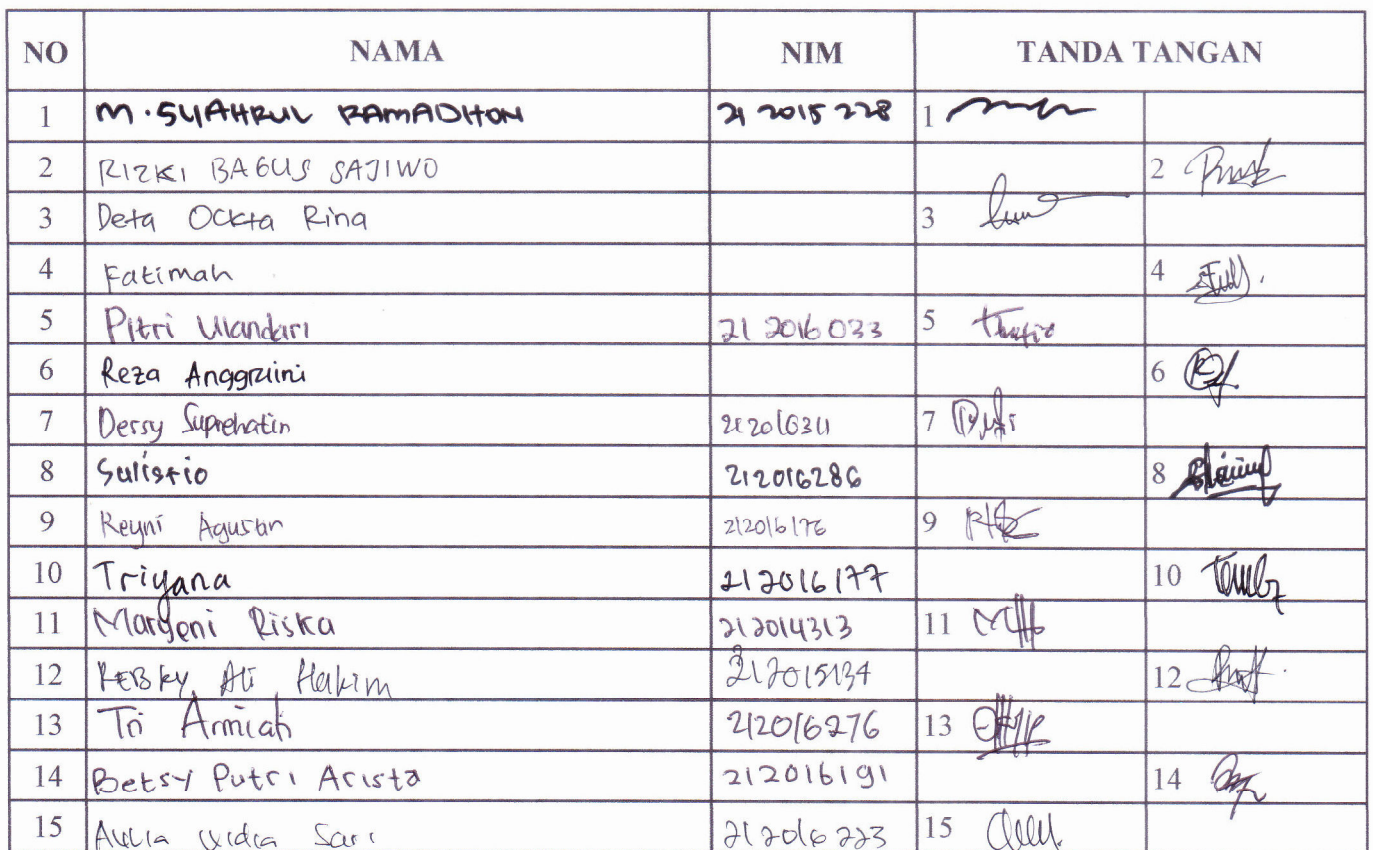 NO NAMA NIM TANDA TANGAN
1 M. SYAHRUL RAMADHON 21 2015 228 1
2 RIZKI BAGUS SAJIWO 2
3 Deta Ockta Rina 3
4 Fatimah 4
5 Pitri Ulandari 21 2016 033 5
6 Reza Anggraini 6
7 Dersy Suprehatin 7
8 Sulistio 212016286 8
9 Reyni Agustan 212016176 9
10 Triyana 212016177 10
11 Margeni Riska 212014313 11
12 Ali Hakim 212015134 12
13 Tri Armiah 212016276 13
14 Betsy Putri Arista 212016191 14
15 Aulia Widia Sari 212016223 15